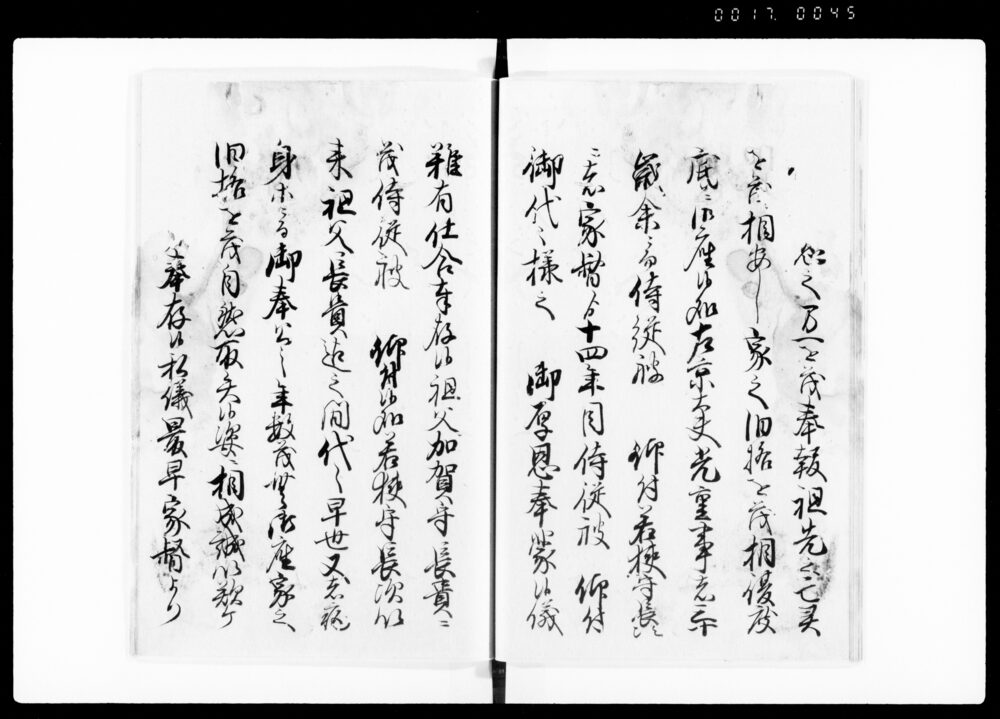 0017 0045
忠之万一をも奉報祖先之亡霊
をも相安し家之旧格をも相復度
底ニ御座候処左京大夫光重事者
歳余ニ而侍従被 仰付若狭守長
ニ者家督より十四年目侍従被 仰付
御代々様之 御厚恩奉蒙候儀
難有仕合奉存候祖父加賀守長貴ニ
茂侍従被 仰付候処若狭守長次以
来祖父長貴迄之間代々早世又者病
身等ニ而御奉公之年数茂無御座家之
旧格をも自然取失候姿ニ相成誠以歎ケ
敷奉存候私儀最早家督より